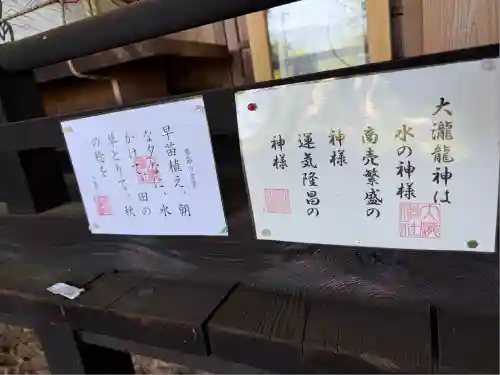 大瀧龍神は
水の神様
商売繁盛の
神様
運気隆昌の
神様
早苗植え、朝
な夕なに、水
かけて、田の
草とりて、秋
の稔を